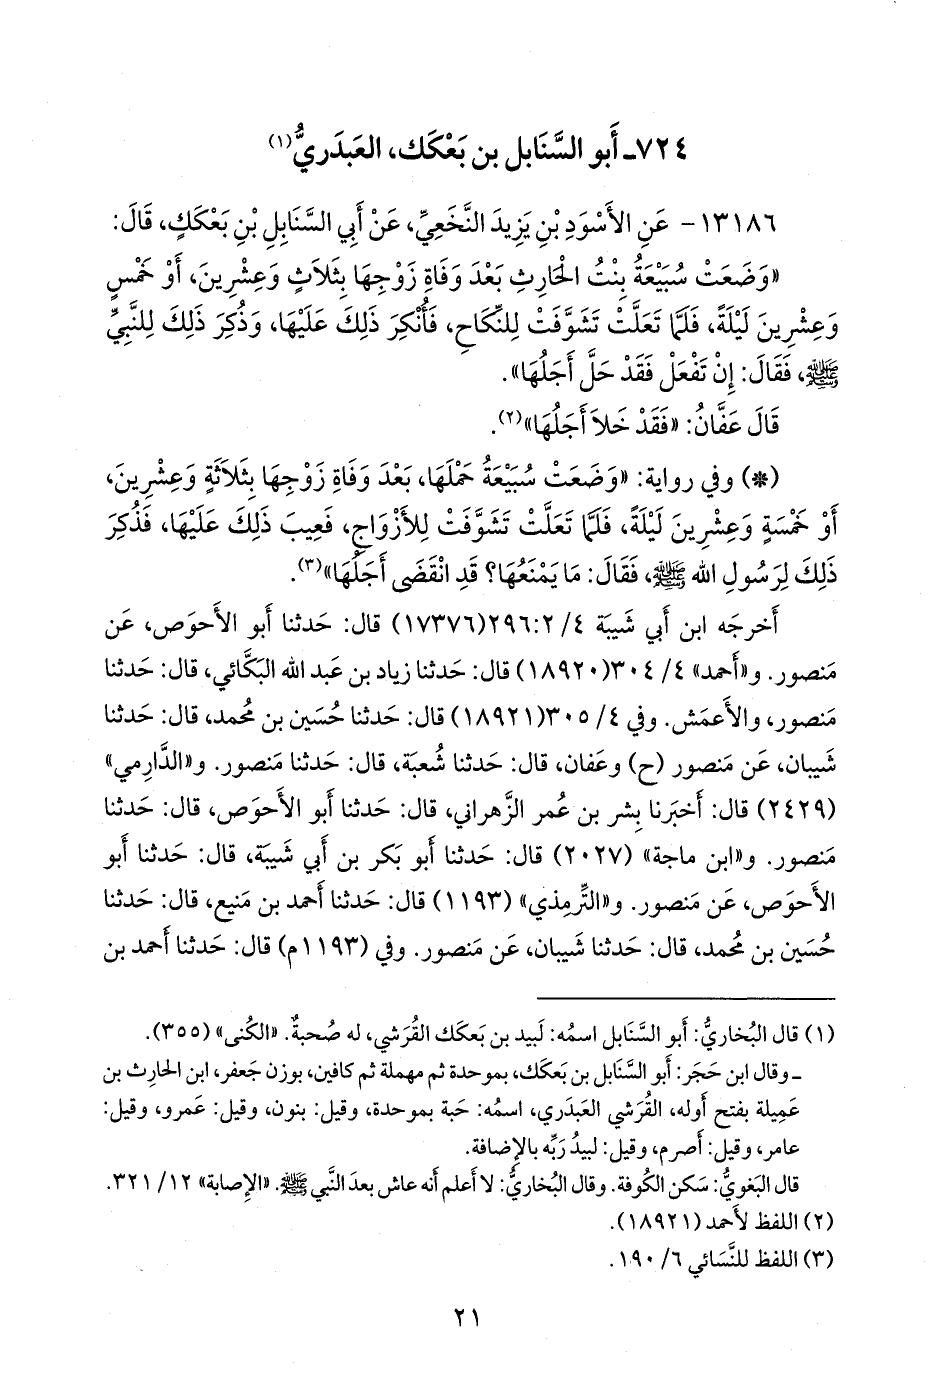 ٧٢٤ـ أَبو السَّنَابل بن بَعْكَك، العَبدَريُّ(١)
١٣١٨٦ - عَنِ الأَسْوَدِ بْنِ يَزِيدَ النَّخَعِيِّ، عَنْ أَبِي السَّنَابِلِ بْنِ بَعْكَكٍ، قَالَ:
«وَضَعَتْ سُبَيْعَةُ بِنْتُ الْحَارِثِ بَعْدَ وَفَاةِ زَوْجِهَا بِثَلاَثٍ وَعِشْرِينَ، أَوْ خَمْسٍ
وَعِشْرِينَ لَيْلَةً، فَلَمَّا تَعَلَّتْ تَشَوَّفَتْ لِلنِّكَاحِ، فَأُنْكِرَ ذَلِكَ عَلَيْهَا، وَذُكِرَ ذَلِكَ لِلنَّبِيِّ
ﷺ، فَقَالَ: إِنْ تَفْعَلْ فَقَدْ حَلَّ أَجَلُهَا».
قَالَ عَفَّانُ: «فَقَدْ خَلاَ أَجَلُهَا»(٢).
(*) وفي رواية: «وَضَعَتْ سُبَيْعَةُ حَمْلَهَا، بَعْدَ وَفَاةِ زَوْجِهَا بِثَلاَثَةٍ وَعِشْرِينَ،
أَوْ خَمْسَةٍ وَعِشْرِينَ لَيْلَةً، فَلَمَّا تَعَلَّتْ تَشَوَّفَتْ لِلأَزْوَاجِ، فَعِيبَ ذَلِكَ عَلَيْهَا، فَذُكِرَ
ذَلِكَ لِرَسُولِ الله ﷺ، فَقَالَ: مَا يَمْنَعُهَا؟ قَدِ انْقَضَى أَجَلُهَا»(٣).
أَخرجَه ابن أَبي شَيبة ٤/ ٢٩٦:٢(١٧٣٧٦) قال: حَدثنا أَبو الأَحوَص، عَن
مَنصور. و«أَحمد» ٤/ ٣٠٤(١٨٩٢٠) قال: حَدثنا زياد بن عَبد الله البَكَّائي، قال: حَدثنا
مَنصور، والأَعمَش. وفي ٤/ ٣٠٥(١٨٩٢١) قال: حَدثنا حُسَين بن مُحمد، قال: حَدثنا
شَيبان، عَن مَنصور (ح) وعَفان، قال: حَدثنا شُعبَة، قال: حَدثنا مَنصور. و«الدَّارمي»
(٢٤٢٩) قال: أَخبَرنا بِشر بن عُمر الزَّهراني، قال: حَدثنا أَبو الأَحوَص، قال: حَدثنا
مَنصور. و«ابن ماجة» (٢٠٢٧) قال: حَدثنا أَبو بَكر بن أَبي شَيبة، قال: حَدثنا أَبو
الأَحوَص، عَن مَنصور. و«التِّرمِذي» (١١٩٣) قال: حَدثنا أَحمد بن مَنيع، قال: حَدثنا
حُسَين بن مُحمد، قال: حَدثنا شَيبان، عَن مَنصور. وفي (١١٩٣م) قال: حَدثنا أَحمد بن
(١) قال البُخاريُّ: أَبو السَّنَابل اسمُه: لَبيد بن بَعكَك القُرَشي، له صُحبةٌ. «الكُنى» (٣٥٥).
ـ وقال ابن حَجَر: أَبو السَّنَابل بن بَعكَك، بموحدة ثم مهملة ثم كافين، بوزن جَعفر، ابن الحارِث بن
عَمِيلة بفتح أَوله، القُرَشي العَبدَري، اسمُه: حَبة بموحدة، وقيل: بنون، وقيل: عَمرو، وقيل:
عامر، وقيل: أَصرم، وقيل: لبيدُ رَبِّه بالإِضافة.
قال البَغويُّ: سَكن الكُوفة. وقال البُخاريُّ: لا أَعلم أَنه عاش بعدَ النَّبي ﷺ. «الإِصابة» ١٢/ ٣٢١.
(٢) اللفظ لأَحمد (١٨٩٢١).
(٣) اللفظ للنَّسَائي ٦/ ١٩٠.
٢١